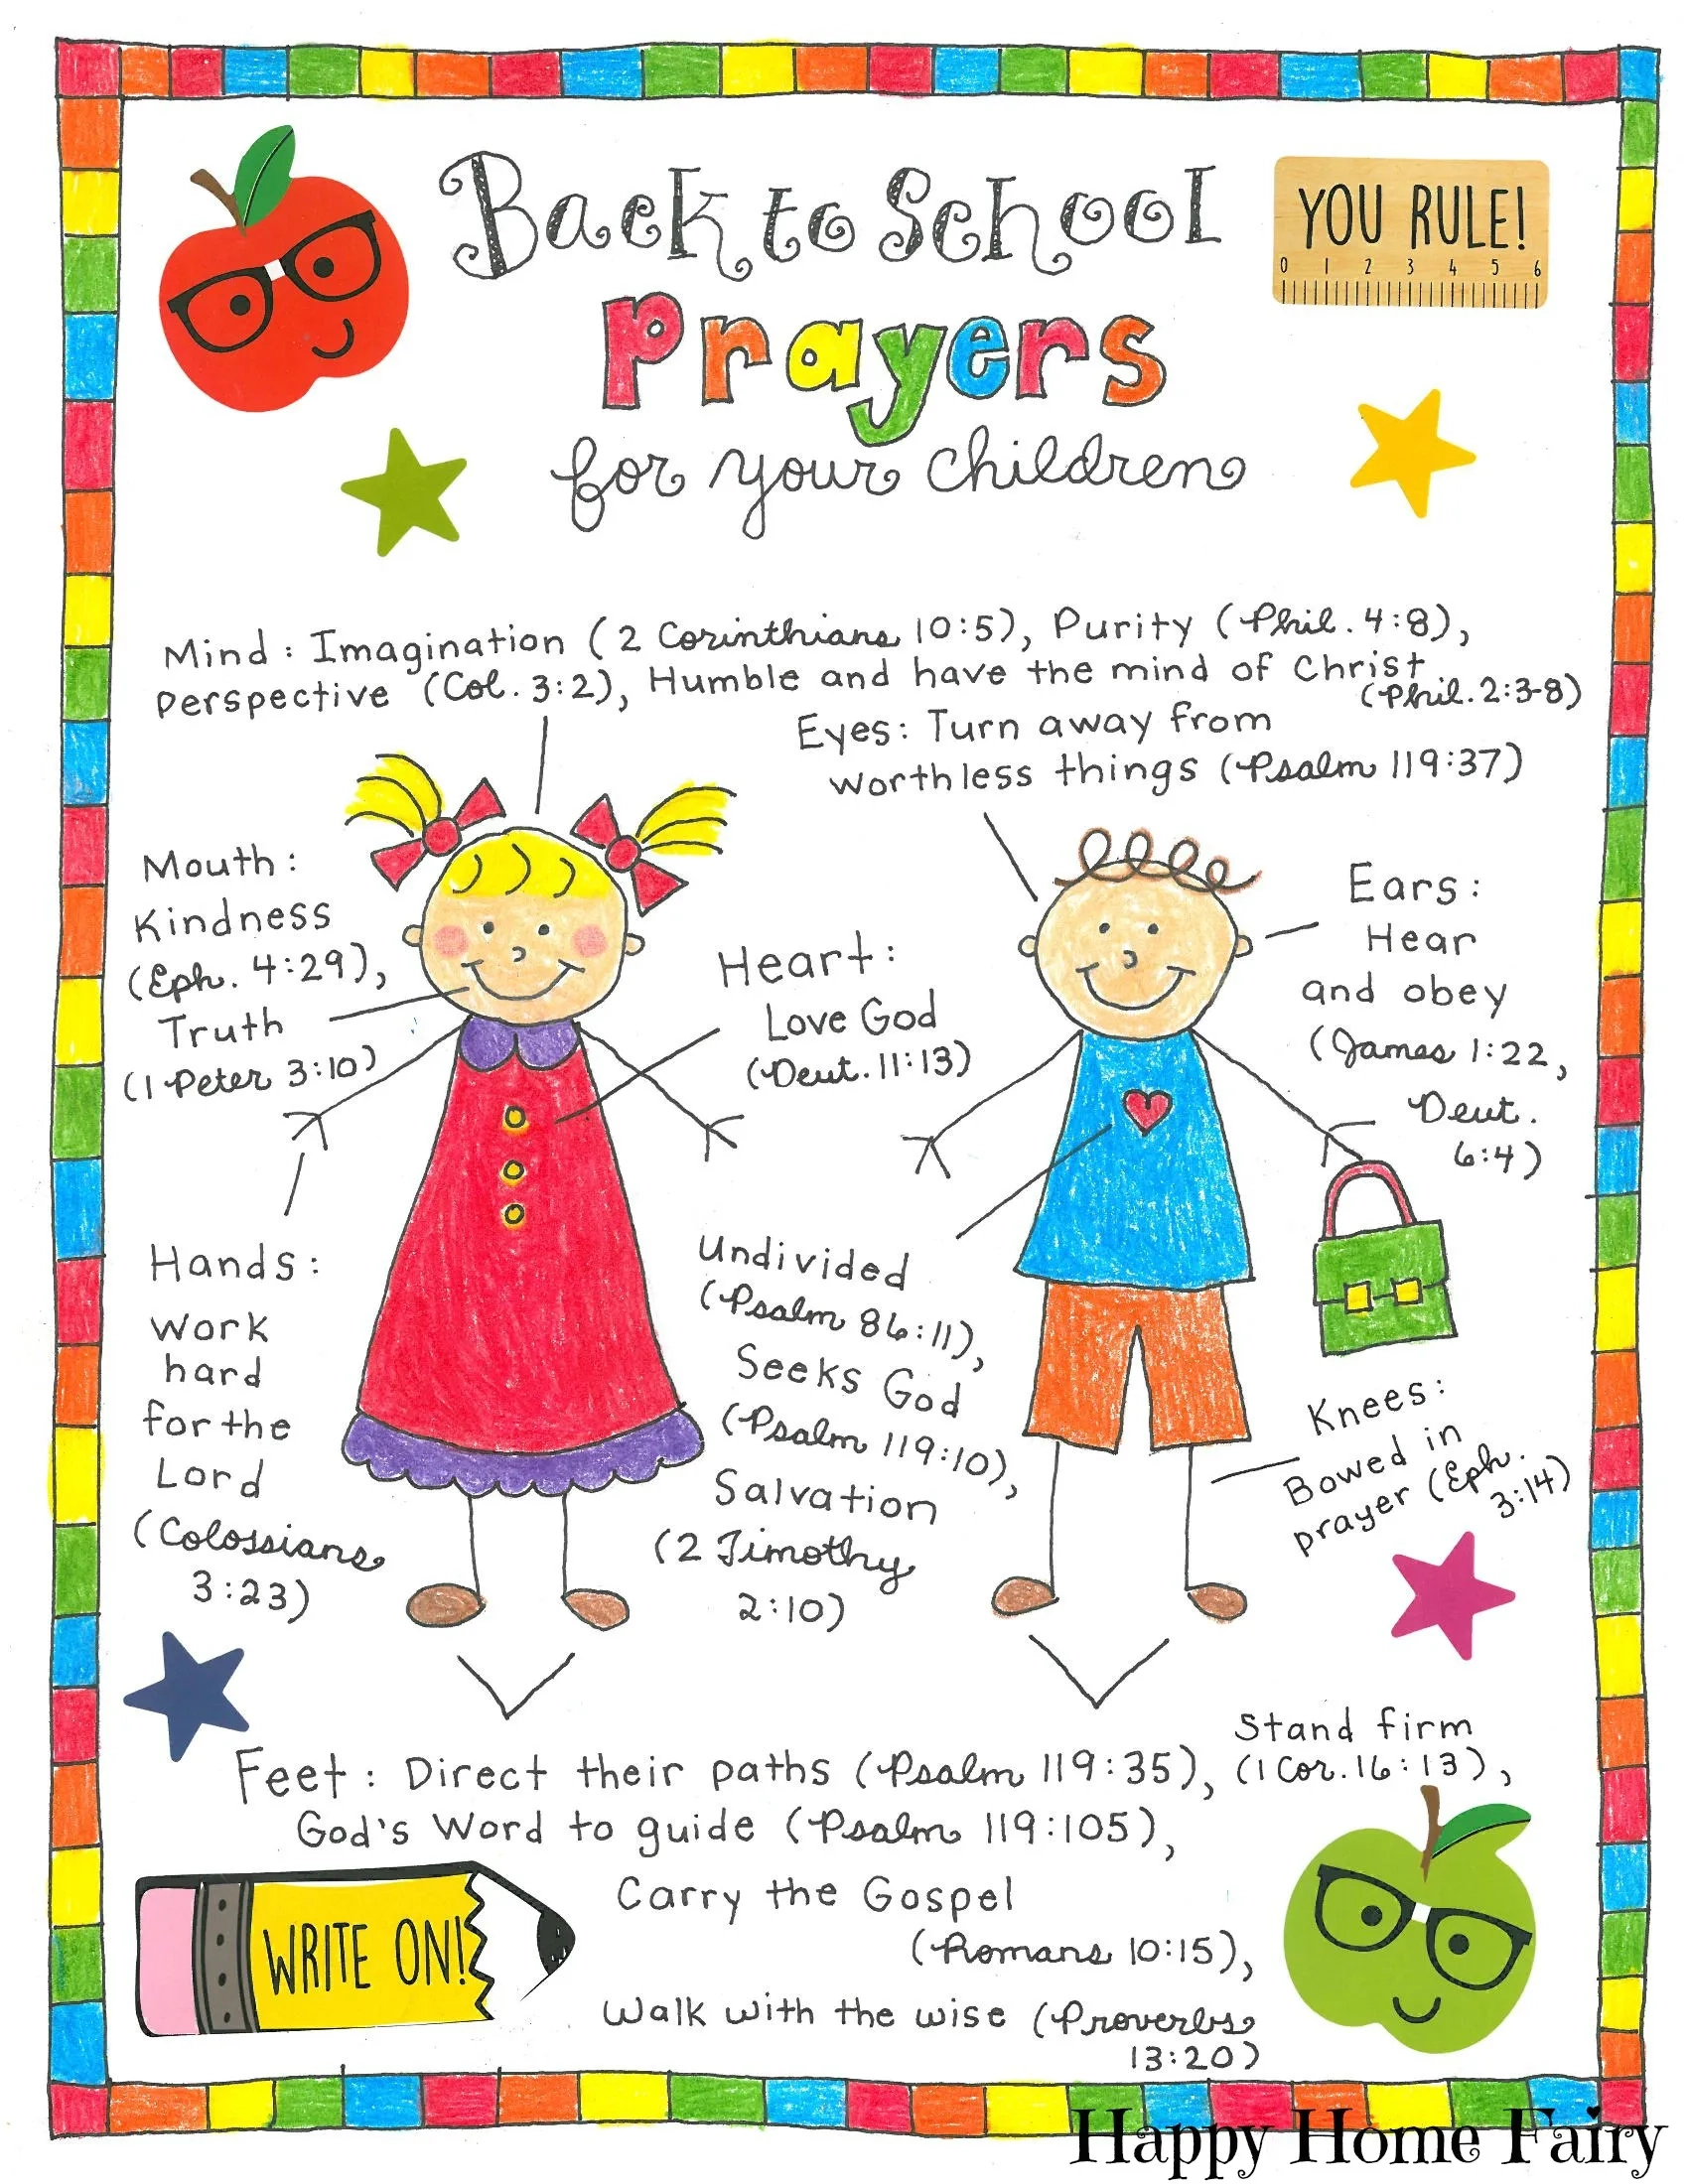 Back to School
YOU RULE!
0 1 2 3 4 5 6
Prayers
for your children
Mind: Imagination (2 Corinthians 10:5), Purity (Phil. 4:8),
perspective (Col. 3:2), Humble and have the mind of Christ
(Phil. 2:3-8)
Eyes: Turn away from
worthless things (Psalm 119:37)
Mouth:
Kindness
(Eph. 4:29),
Truth
(1 Peter 3:10)
Heart:
Love God
(Deut. 11:13)
Ears:
Hear
and obey
(James 1:22,
Deut.
6:4)
Hands:
work
hard
for the
Lord
(Colossians
3:23)
Undivided
(Psalm 86:11),
Seeks God
(Psalm 119:10),
Salvation
(2 Timothy
2:10)
Knees:
Bowed in
prayer (Eph.
3:14)
Feet: Direct their paths (Psalm 119:35),
Stand firm
(1 Cor. 16:13),
God's Word to guide (Psalm 119:105),
Carry the Gospel
(Romans 10:15),
Walk with the wise (Proverbs
13:20)
WRITE ON!
Happy Home Fairy